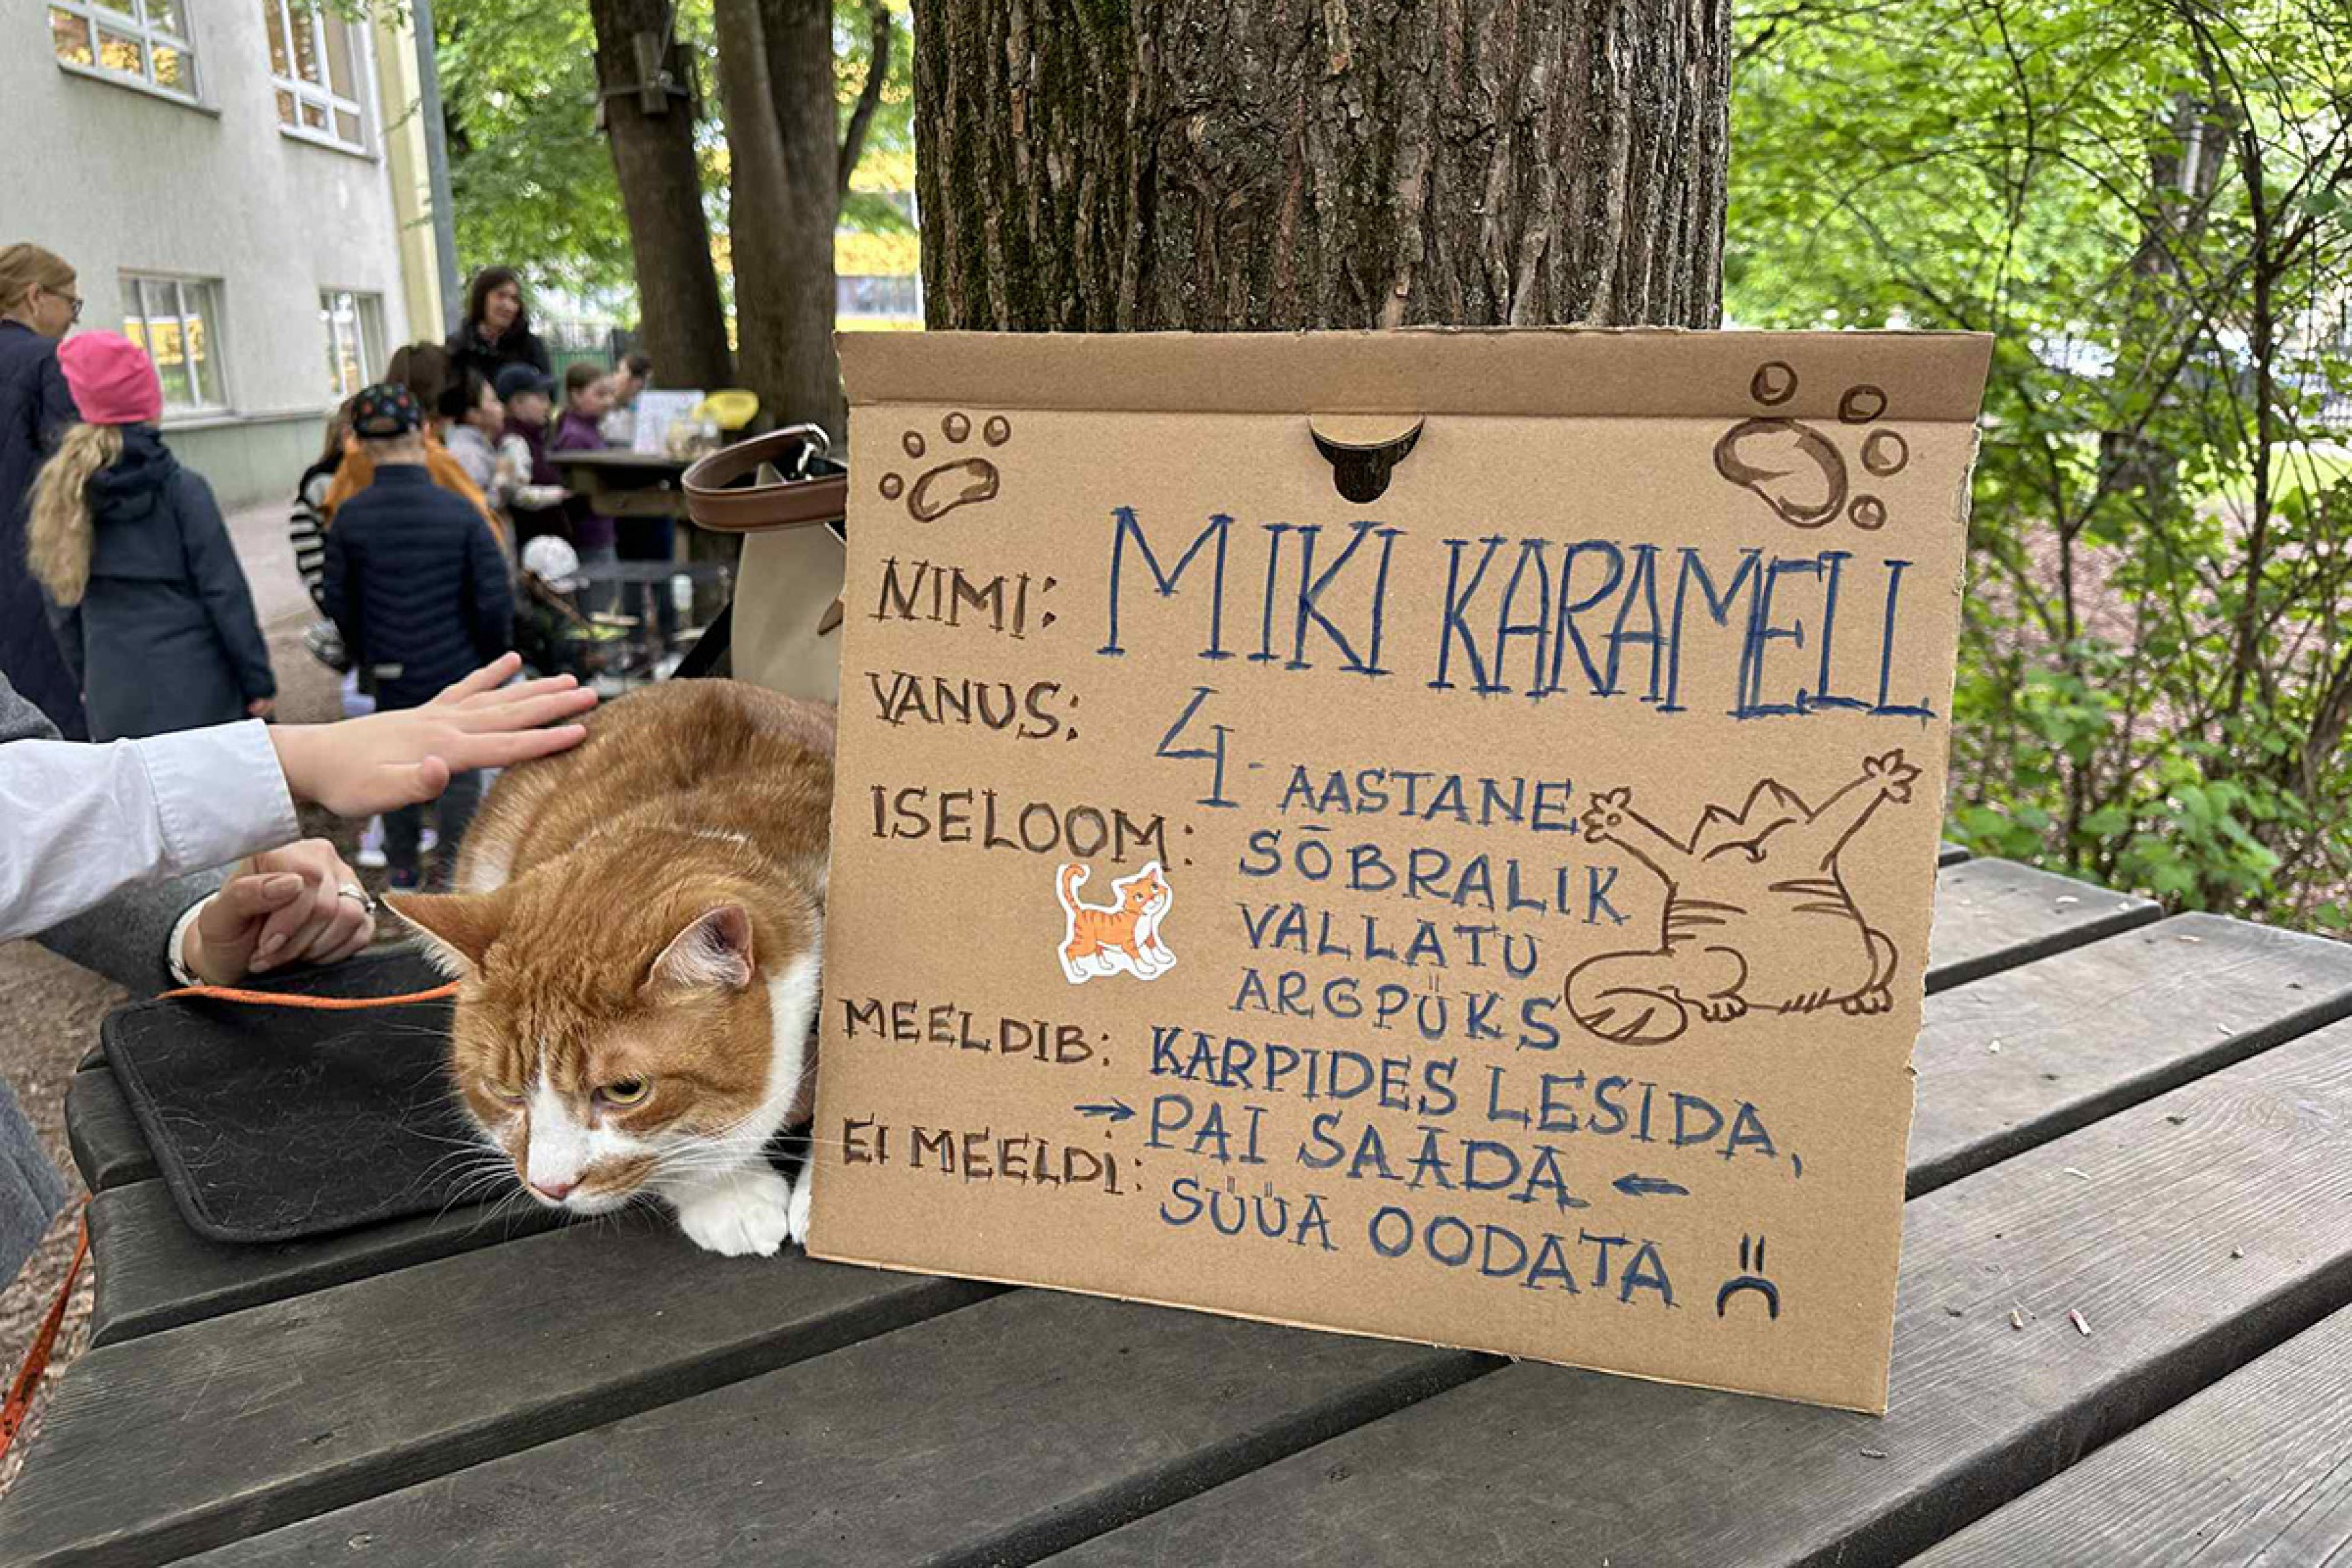 NIMI: MIKI KARAMELL
VANUS: 4-AASTANE
ISELOOM: SÕBRALIK
VALLATU
ARGPÜKS
MEELDIB: KARPIDES LESIDA,
→ PAI SAADA ←
EI MEELDI: SÜÜA OODATA